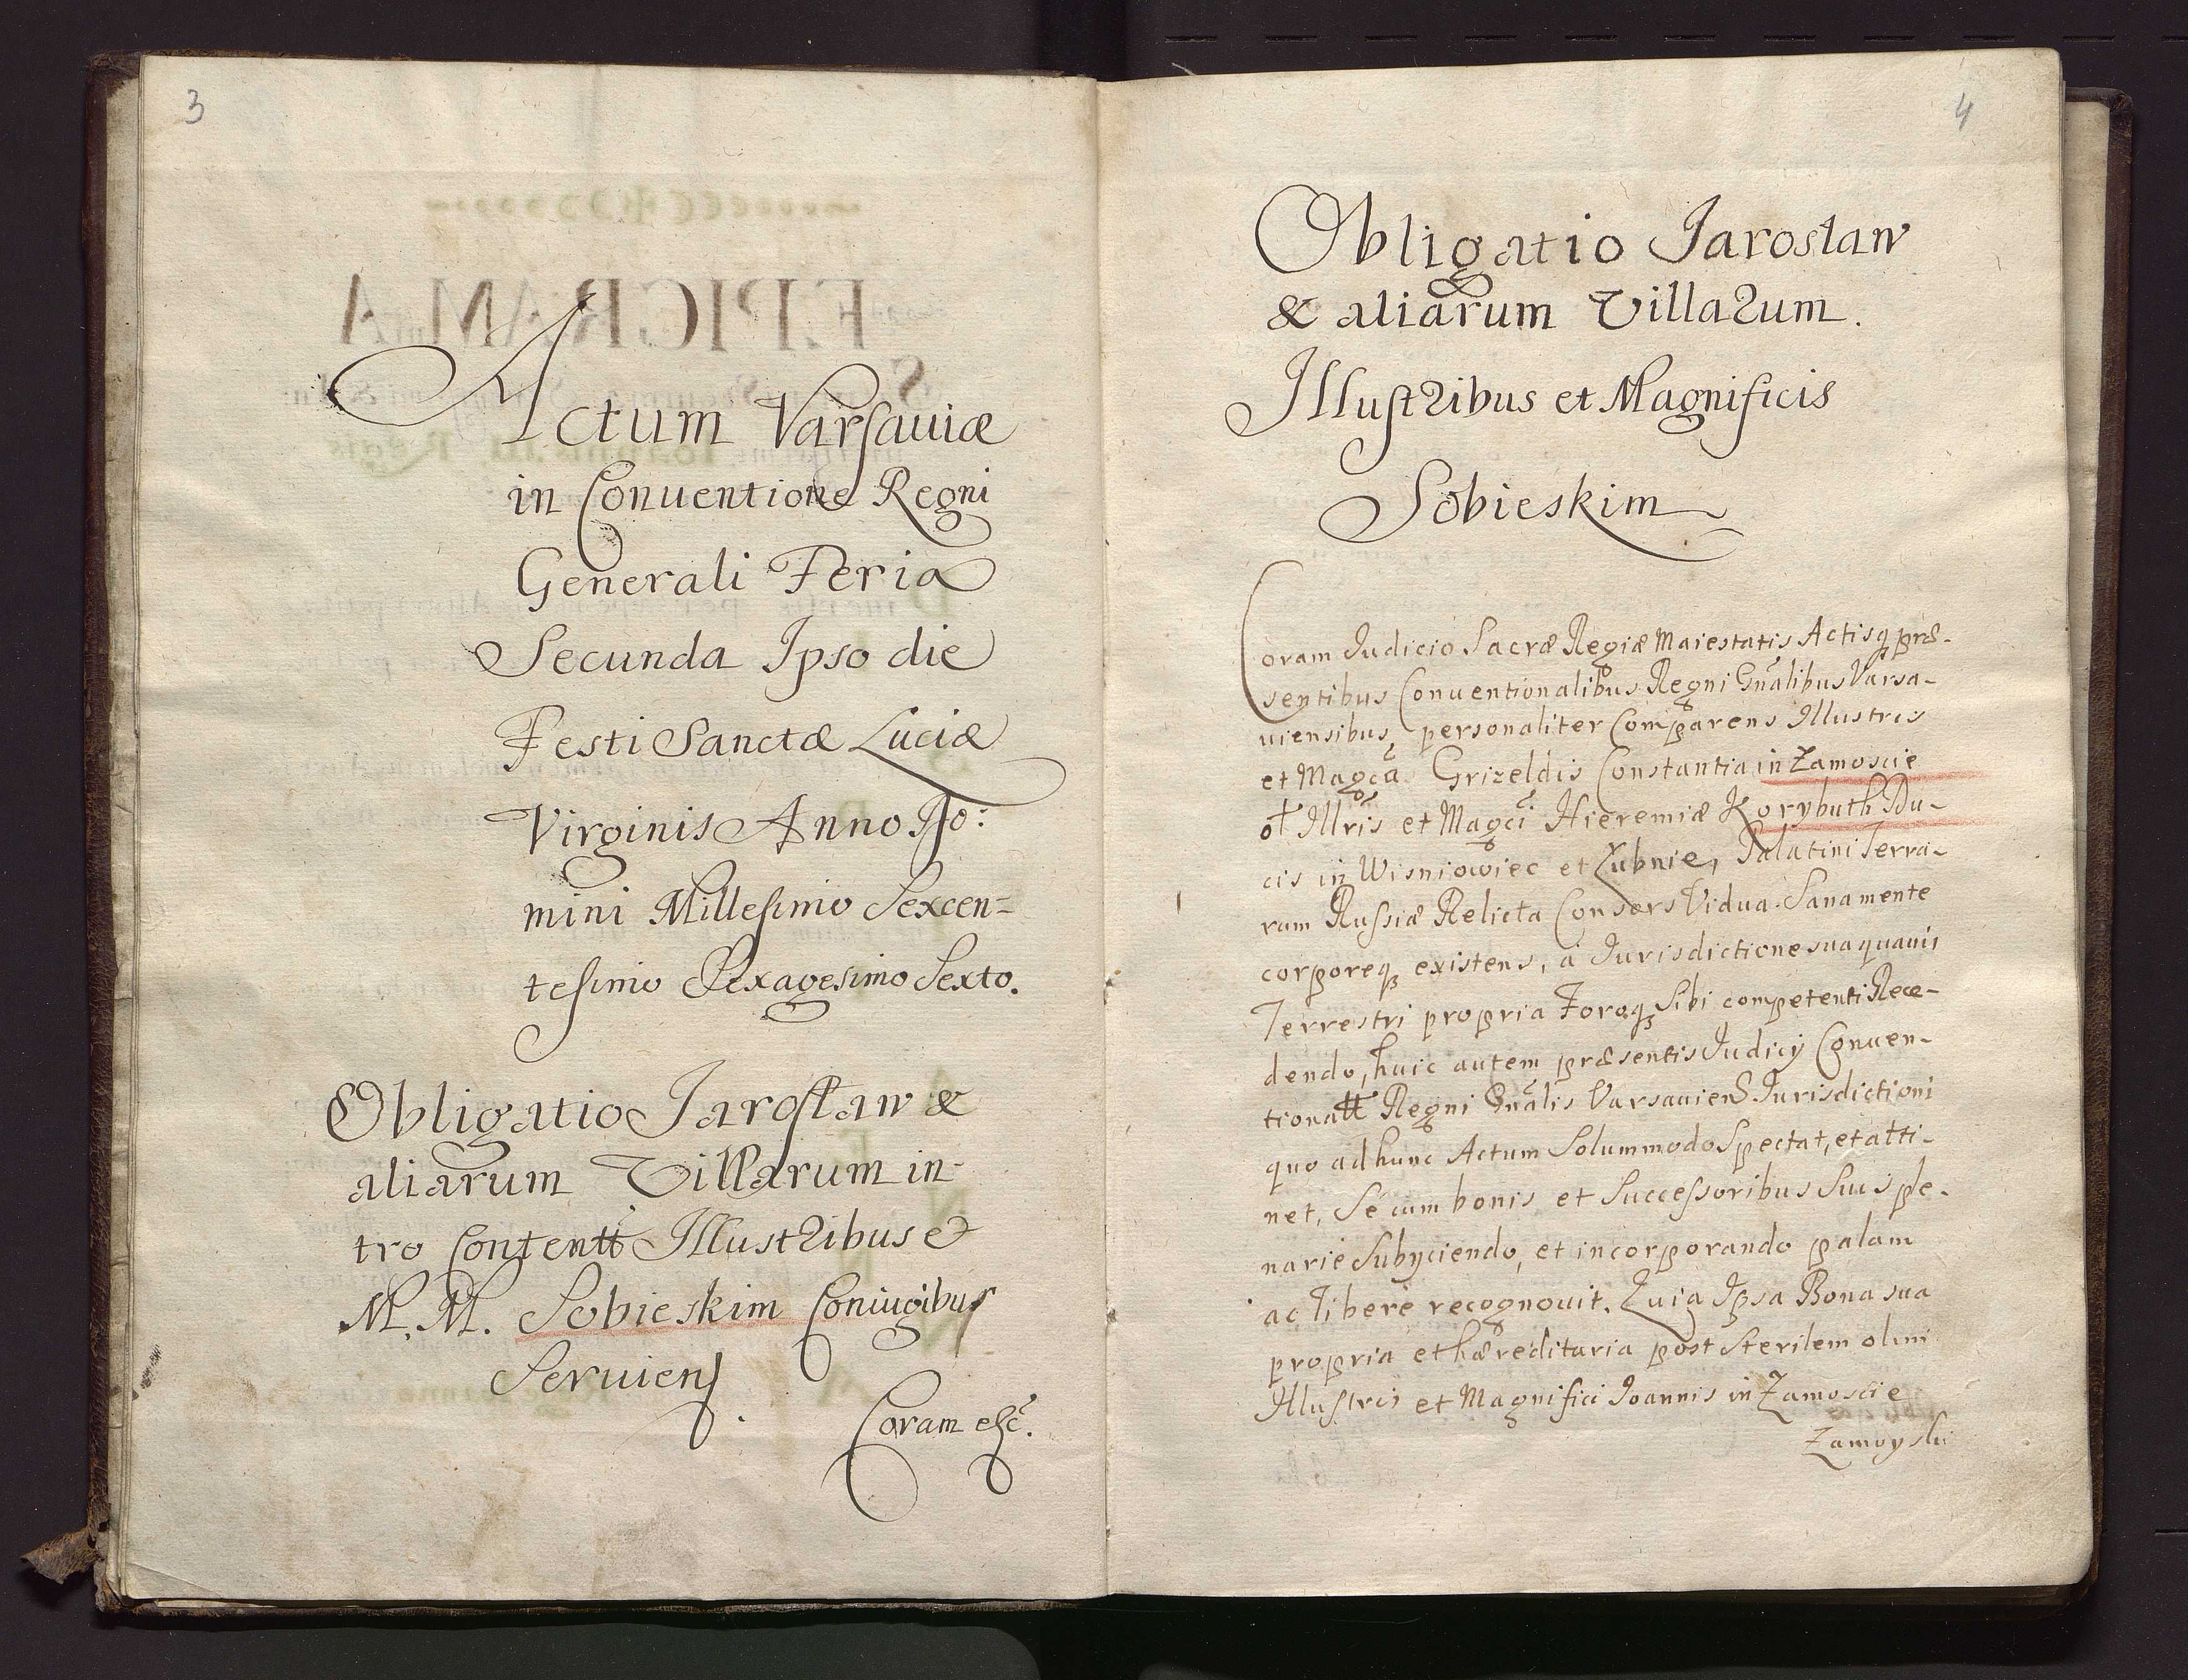 3
Actum Varsauiæ
in Conuentione Regni
Generali Feria
Secunda Ipso die
Festi Sanctæ Luciæ
Virginis Anno Do:
mini Millesimo Sexcen=
tesimo Sexagesimo Sexto.
Obligatio Jarosław &
aliarum Villarum in-
tro Contentt Illustribus et
M. M. Sobieskim Coniugibus
Seruiens.
Coram etc.
4
Obligatio Jarosław
& aliarum Villarum.
Illustribus et Magnificis
Sobieskim
Coram Iudicio Sacræ Regiæ Maiestatis Actisq præ-
sentibus Conuentionalibus Regni Gnalibus Varsa-
uiensibus, personaliter Comparens Illustris
et Magca Grizeldis Constantia in Zamoscie
ol Illris et Magci Hieremiæ Korybuth Du-
cis in Wisniowiec et Lubnie, Palatini Terra-
rum Russiæ Relicta Consors Vidua. Sana mente
corporeq existens, à Jurisdictione sua quauis
Terrestri propria Foroq sibi competenti Rece-
dendo, huic autem præsentis Judicij Conuen-
tionatt Regni Gnalis Varsauiens Jurisdictioni
quo ad hunc Actum Solummodo Spectat, et atti-
net, Se cum bonis et Successoribus Suis ple-
narie Subijciendo, et incorporando palam
ac libere recognouit. Quia Ipsa Bona sua
propria et hæreditaria post sterilem olim
Illustris et Magnifici Joannis in Zamoscie
Zamoyski